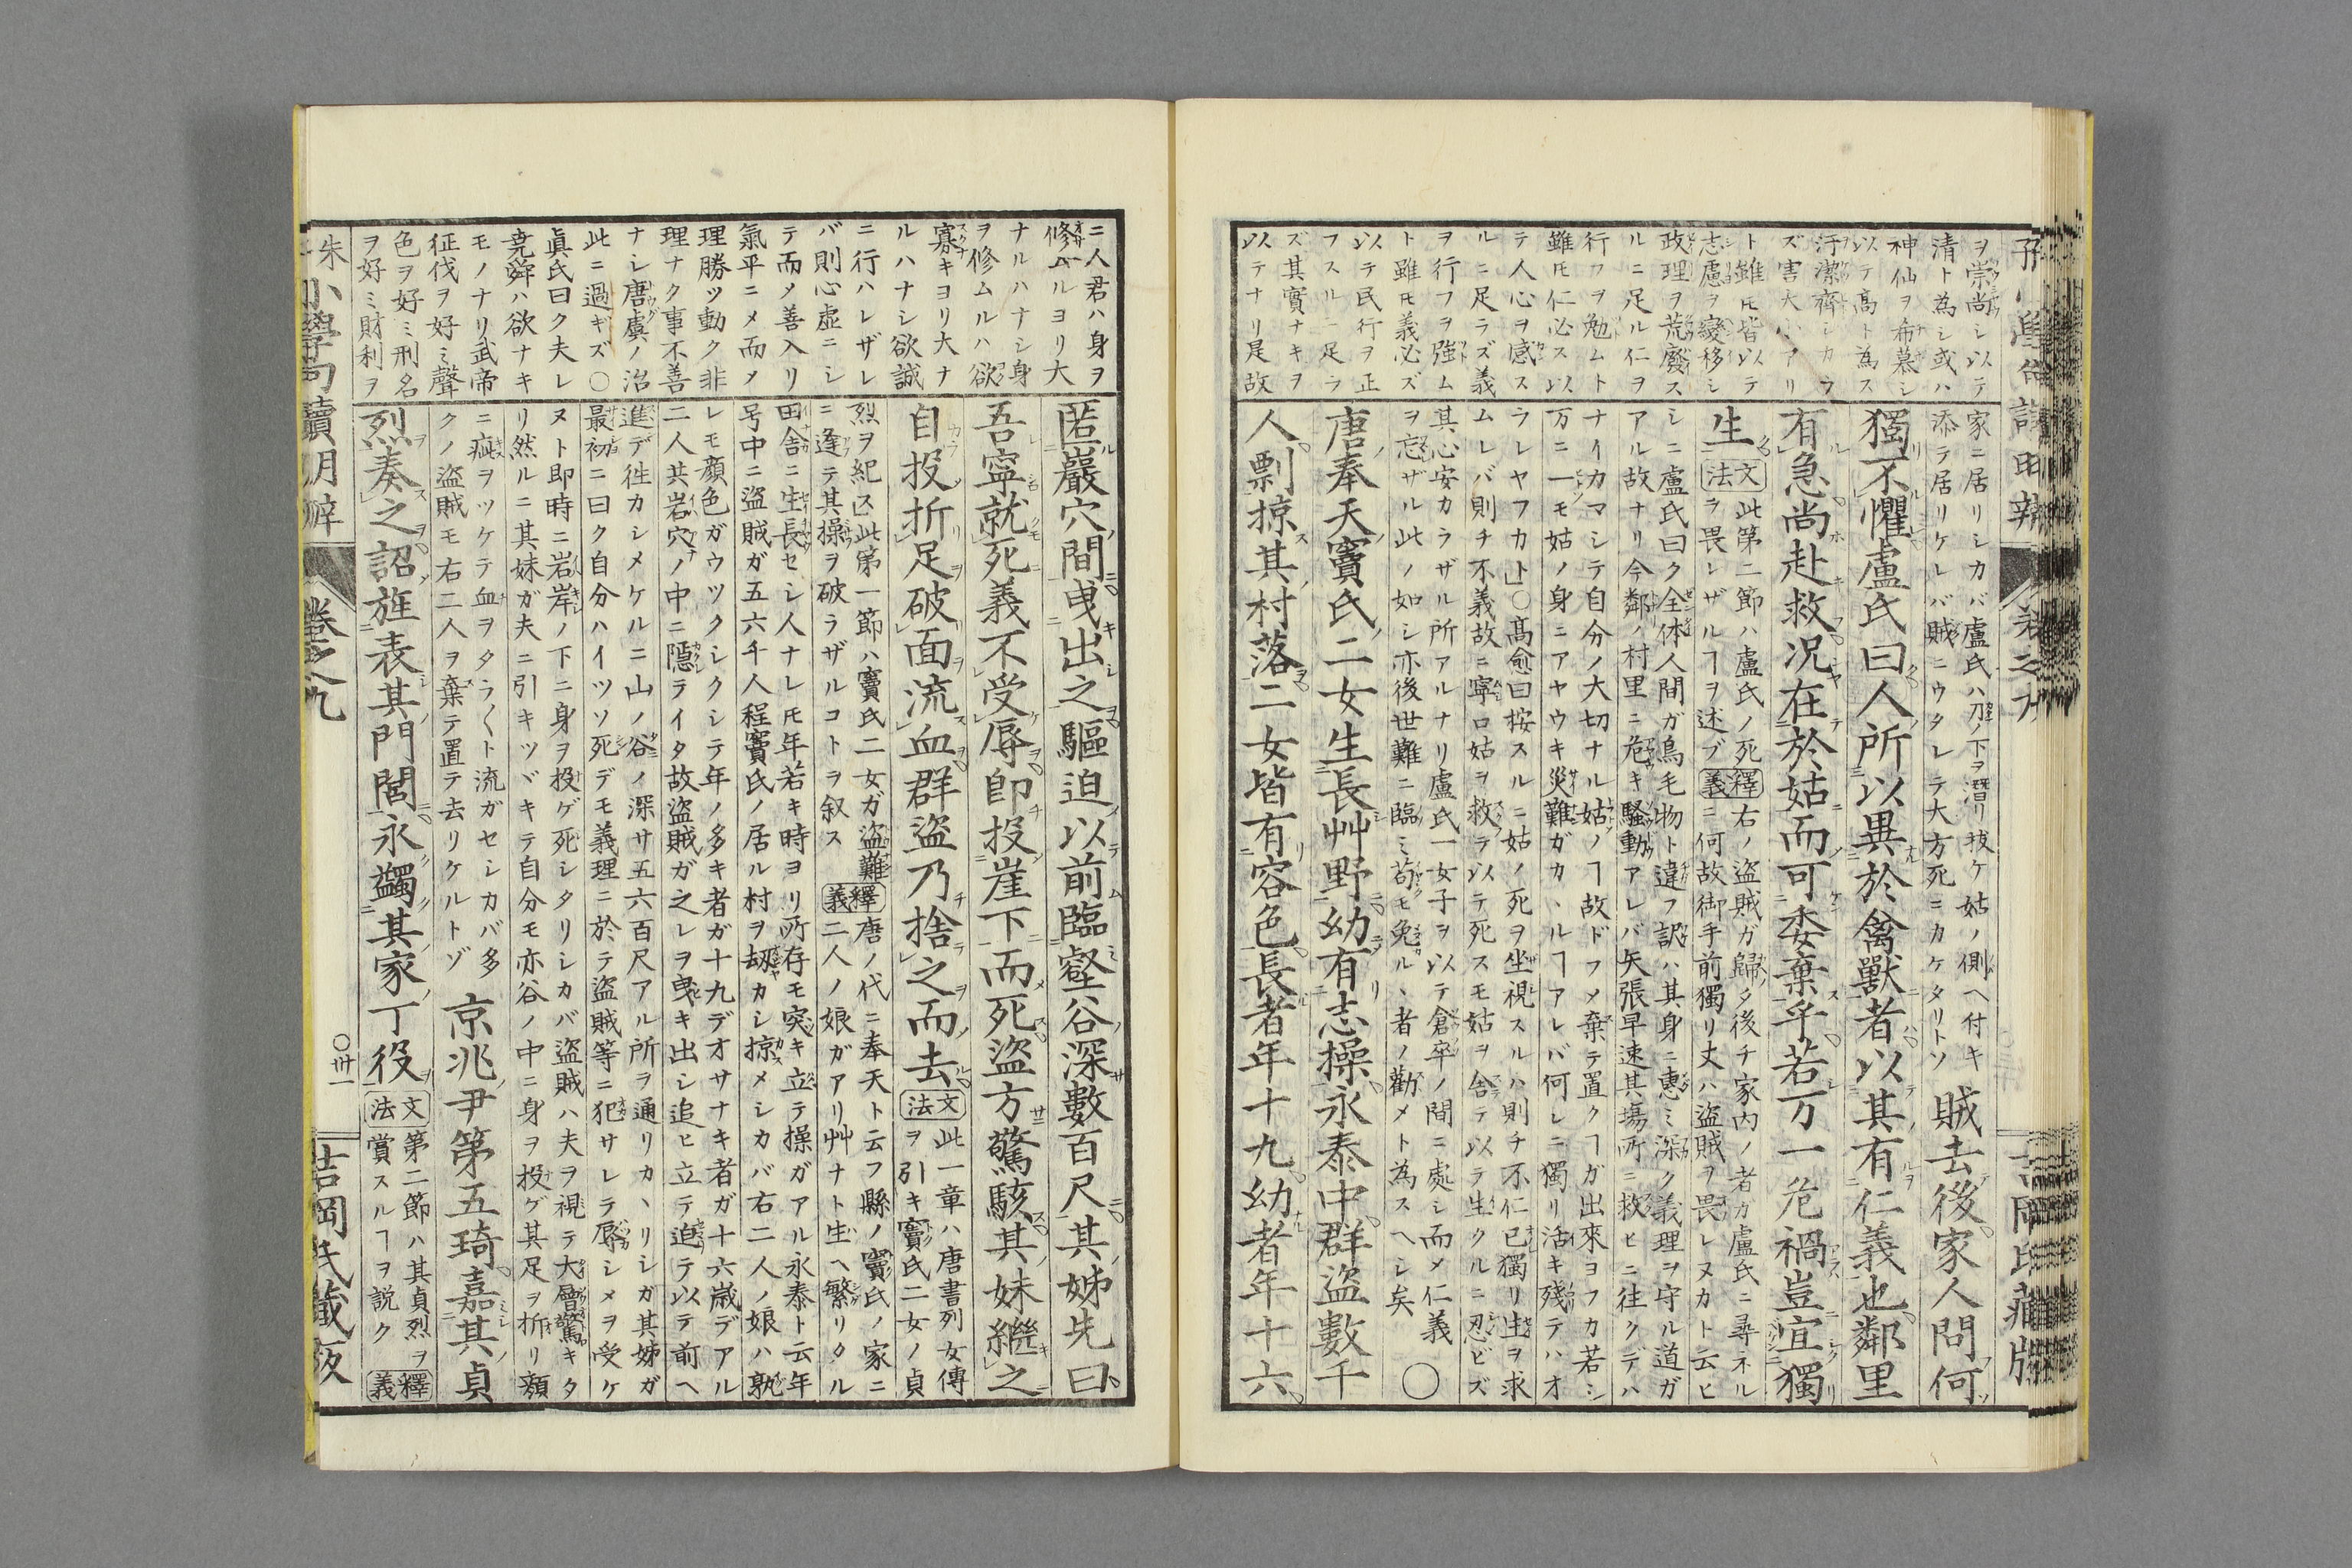 ヲ崇尚シ以テ
清ト為シ或ハ
神仙ヲ希慕シ
以テ高ト為ス
汙潔齊シカラ
ズ害大小アリ
ト雖𪜈皆以テ
志慮ヲ變移シ
政理ヲ荒廢ス
ルニ足ル仁ヲ
行フヲ勉ムト
雖𪜈仁必ス以
テ人心ヲ感ス
ルニ足ラズ義
ヲ行フヲ強ム
ト雖𪜈義必ズ
以テ民行ヲ正
フスルニ足ラ
ズ其實ナキヲ
以テナリ是故
家ニ居リシカバ盧氏ハ刀ノ下ヲ潛リ拔ケ姑ノ側ヘ付キ
添ラ居リケレバ賊ニウタレテ大方死ニカケタリトソ
賊去後家人問何
獨不懼盧氏曰人所以異於禽獸者以其有仁義也鄰里
有急尚赴救况在於姑而可委棄乎若万一危禍豈宜獨
生
文法
此第二節ハ盧氏ノ死
ヲ畏レザルヿヲ述ブ
釋義
右ノ盜賊ガ歸タ後チ家内ノ者カ盧氏ニ尋ネル
ニ何故御手前獨リ丈ハ盜賊ヲ畏レヌカト云ヒ
シニ盧氏曰ク全体人間ガ鳥毛物ト違フ訳ハ其身ニ惠ミ深ク義理ヲ守ル道ガ
アル故ナリ今鄰ノ村里ニ危キ騷動アレバ矢張早速其塲所ニ救ヒニ往クデハ
ナイカマシテ自分ノ大切ナル姑ノヿ故ドフメ棄テ置クヿガ出來ヨフカ若シ
万ニ一モ姑ノ身ニアヤウキ災難ガカヽルヿアレバ何レニ獨リ活キ殘テハオ
ラレヤフカト」〇高愈曰按スルニ姑ノ死ヲ坐視スルハ則チ不仁已獨リ生ヲ求
ムレバ則チ不義故ニ寧ロ姑ヲ救ラ以テ死スモ姑ヲ舎テ以ラ生クルニ忍ビズ
其心安カラザル所アルナリ盧氏一女子ヲ以テ倉卒ノ間ニ處シ而メ仁義
ヲ忘ザル此ノ如シ亦後世難ニ臨ミ苟モ免ルヽ者ノ勸メト為スヘシ矣
〇
唐奉天竇氏二女生長艸野幼有志操永泰中群盜數千
人剽掠其村落二女皆有容色長者年十九幼者年十六
ニ人君ハ身ヲ
修ムルヨリ大
ナルハナシ身
ヲ修ムルハ欲
寡キヨリ大ナ
ルハナシ欲誠
ニ行ハレザレ
バ則心虛ニシ
テ而メ善入リ
氣平ニメ而メ
理勝ツ動ク非
理ナク事不善
ナシ唐虞ノ治
此ニ過ギズ〇
眞氏曰ク夫レ
堯舜ハ欲ナキ
モノナリ武帝
征伐ヲ好ミ聲
色ヲ好ミ刑名
ヲ好ミ財利ヲ
匿巖穴間曳出之驅迫以前臨壑谷深數百尺其姊先曰
吾寧就死義不受辱卽投崖下而死盜方驚駭其妹繼之
自投折足破面流血群盜乃捨之而去
文法
此一章ハ唐書列女傳
ヲ引キ竇氏二女ノ貞
烈ヲ紀ス」此第一節ハ竇氏二女ガ盜難
ニ逢テ其操ヲ破ラザルコトヲ叙ス
釋義
唐ノ代ニ奉天ト云フ縣ノ竇氏ノ家ニ
二人ノ娘ガアリ艸ナト生ヘ繁リタル
田舎ニ生長セシ人ナレ𪜈年若キ時ヨリ所存モ突キ立テ操ガアル永泰ト云年
号中ニ盜賊ガ五六千人程竇氏ノ居ル村ヲ刼カシ掠メシカバ右二人ノ娘ハ孰
レモ顔色ガウツクシクシテ年ノ多キ者ガ十九デオサナキ者ガ十六歳デアル
二人共岩穴ノ中ニ隱ライタ故盜賊ガ之レヲ曳キ出シ追ヒ立テ迫テ以テ前ヘ
進デ徃カシメケルニ山ノ谷ノ深サ五六百尺アル所ヲ通リカヽリシガ其姊ガ
最初ニ曰ク自分ハイツソ死デモ義理ニ於テ盜賊等ニ犯サレラ辱シメヲ受ケ
ヌト即時ニ岩岸ノ下ニ身ヲ投ゲ死シタリシカバ盜賊ハ夫ヲ視テ大層驚キタ
リ然ルニ其妹ガ夫ニ引キツヾキテ自分モ亦谷ノ中ニ身ヲ投ゲ其足ヲ折リ顔
ニ疵ヲツケテ血ヲタラ〱ト流ガセシカバ多
クノ盜賊モ右二人ヲ棄テ置テ去リケルトゾ
京兆尹第五琦嘉其貞
烈奏之詔旌表其門閭永蠲其家丁役
文法
第二節ハ其貞烈ヲ
賞スルヿヲ説ク
釋義
朱子小學句讀明辨
卷之九
〇卅一
吉岡氏藏版